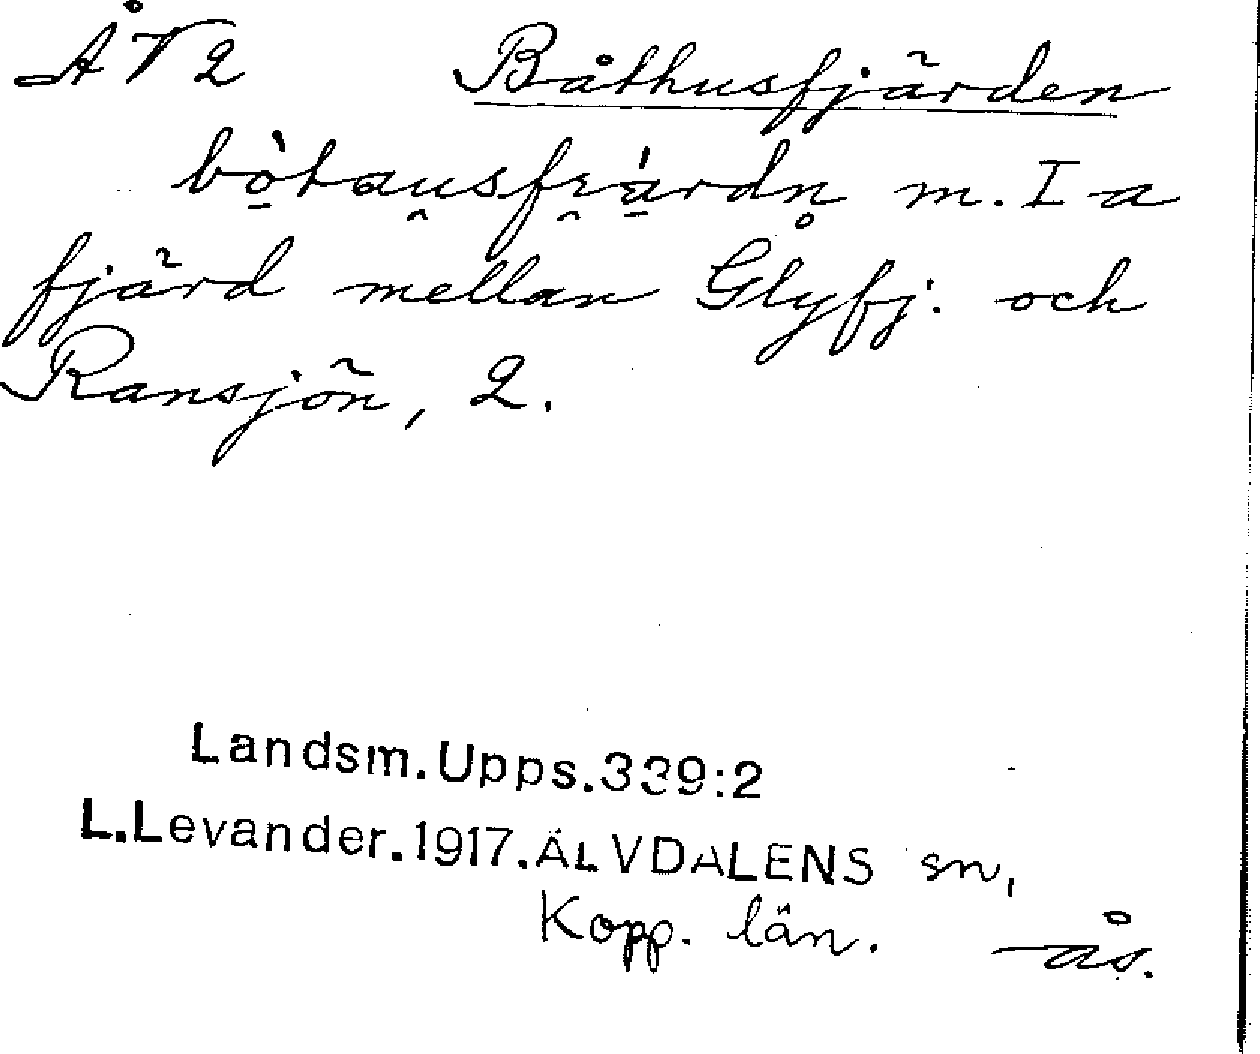 ÅV2 Båthusfjärden
bo̠̊̀tau̯sfi̯ǻ̠rdn̥ m. I a
fjärd mellan Glyfj. och
Ransjön, 2.
Landsm.Upps.339:2
L.Levander.1917.ÄLVDALENS sn,
Kopp. län.
ås.